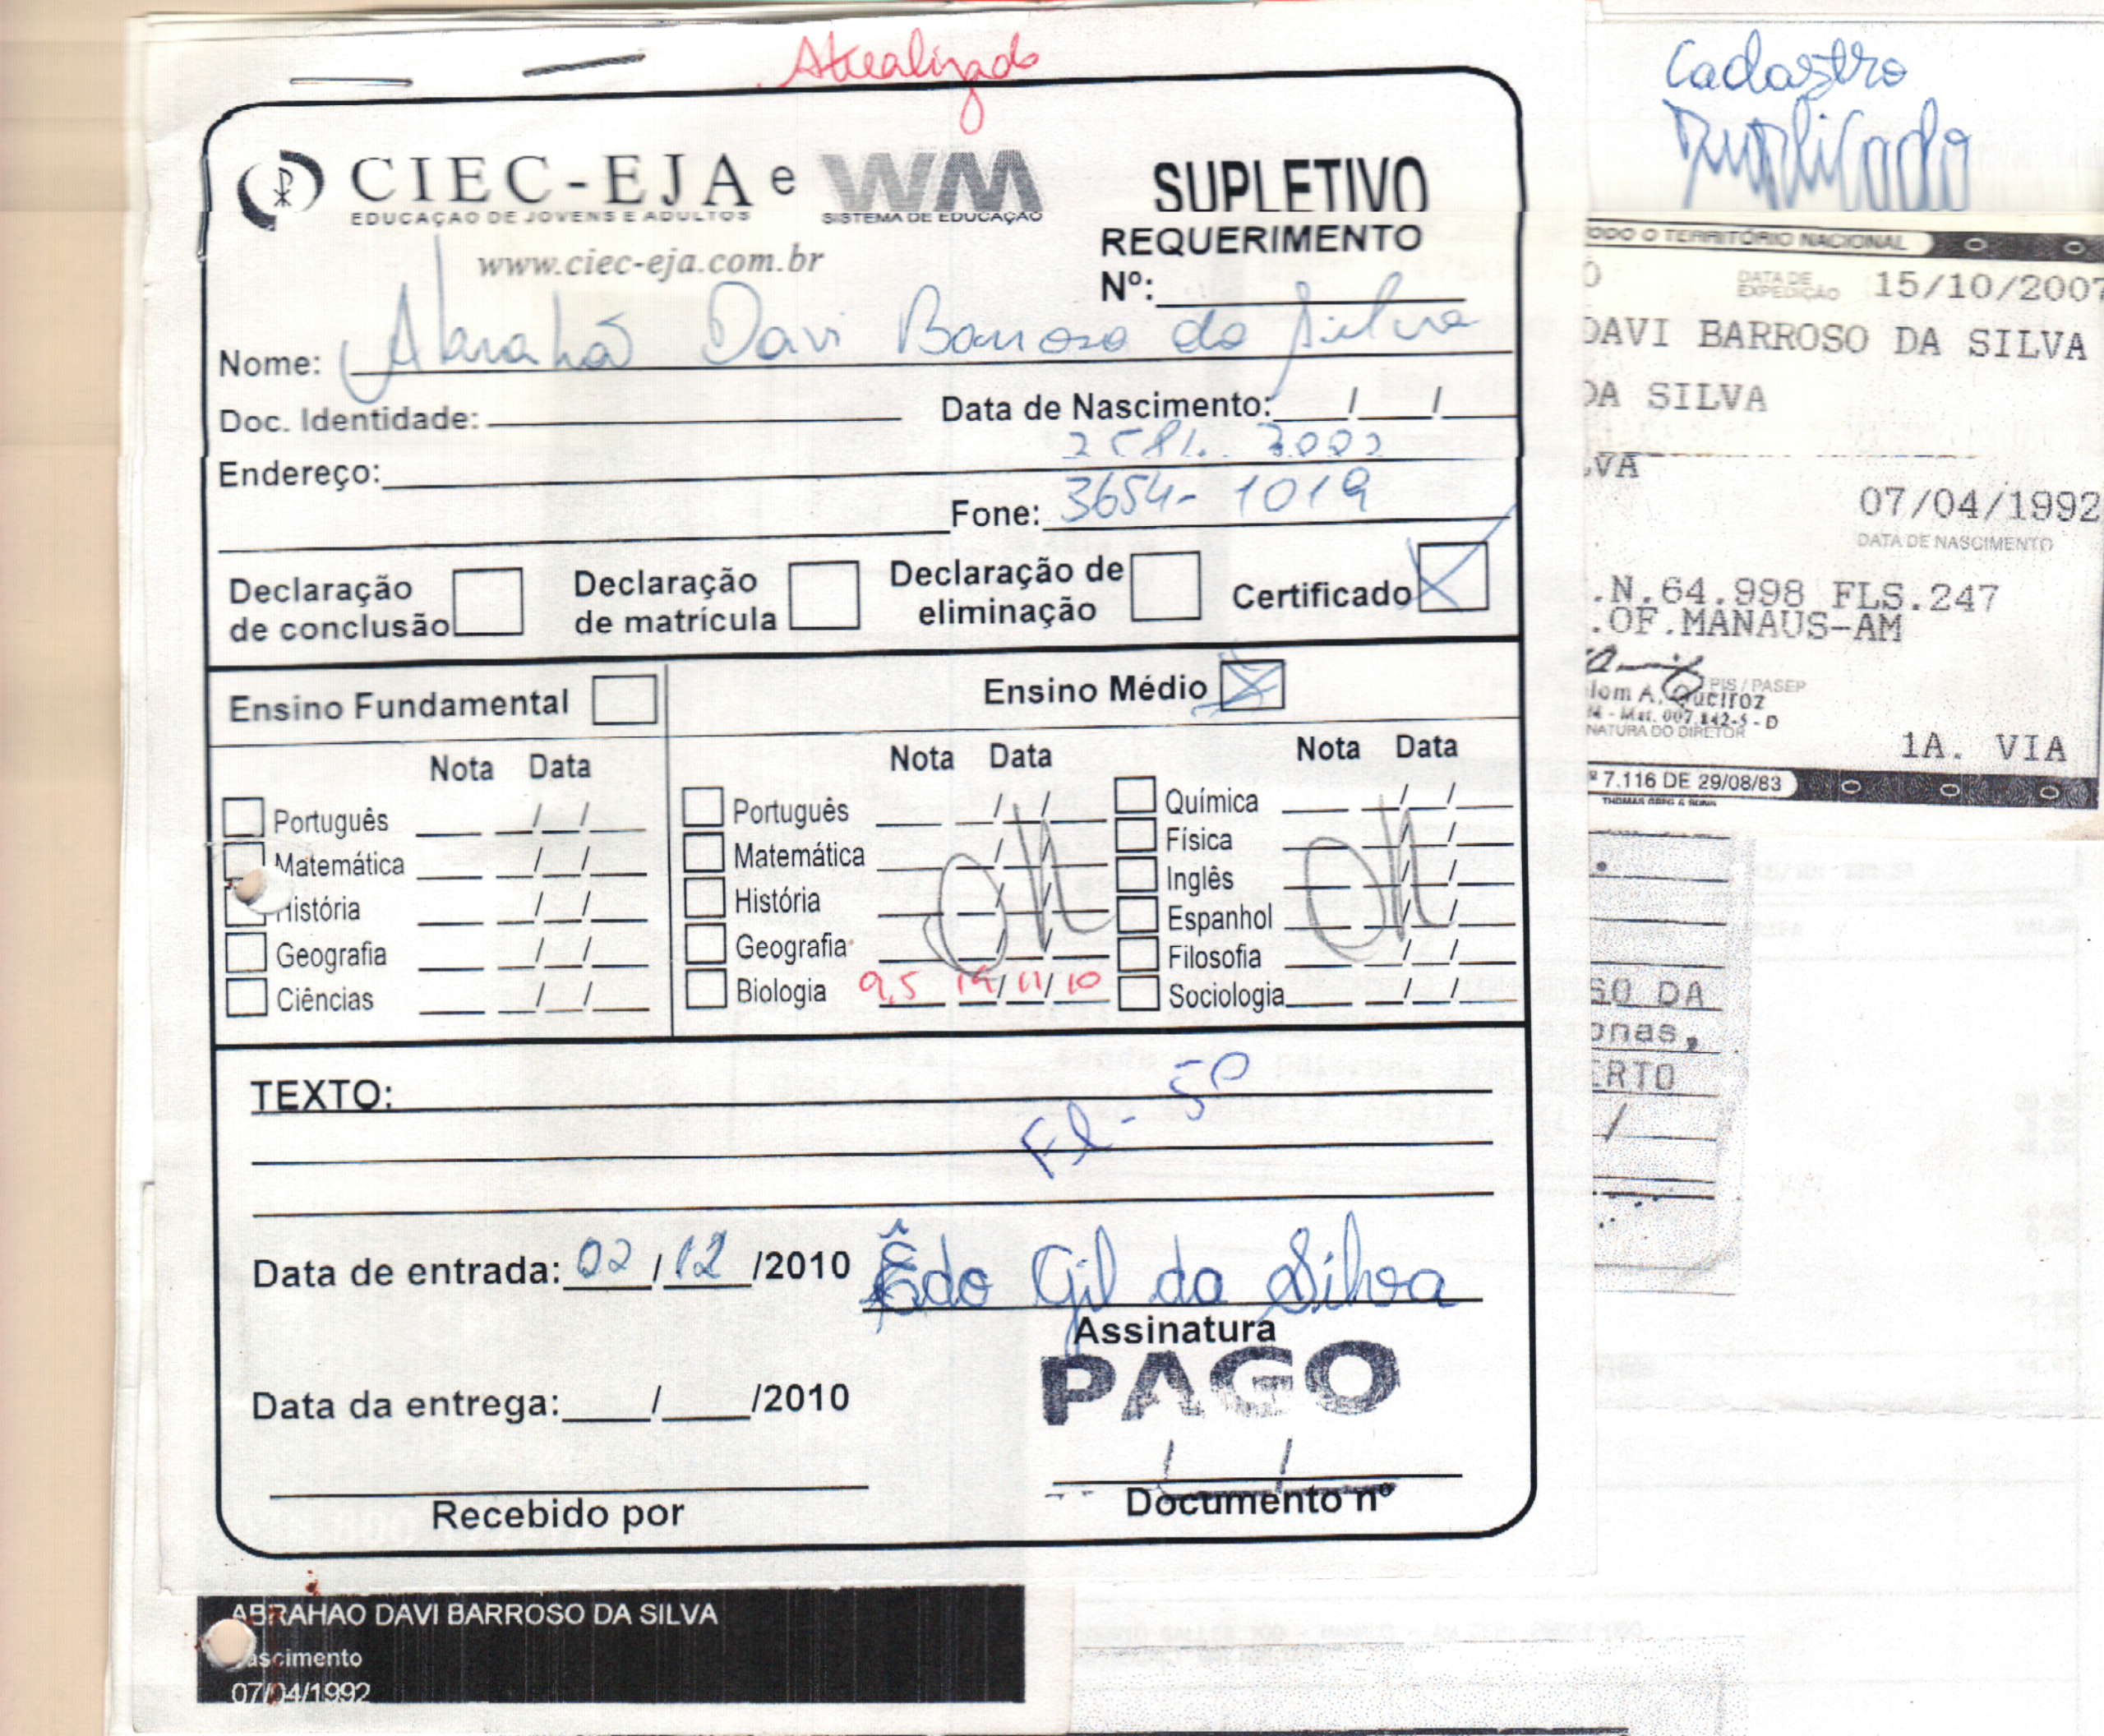 Atualizado
Cadastro
Duplicado
CIEC-EJA e WM
EDUCAÇÃO DE JOVENS E ADULTOS SISTEMA DE EDUCAÇÃO
www.ciec-eja.com.br
SUPLETIVO
REQUERIMENTO
Nº:
Nome: Abrahão Davi Barroso da Silva
Doc. Identidade: Data de Nascimento: / /
Endereço:
3654-1019
Fone:
Declaração de conclusão
Declaração de matrícula
Declaração de eliminação
Certificado X
Ensino Fundamental
Ensino Médio X
Nota Data
Português / /
Matemática / /
História / /
Geografia / /
Ciências / /
Nota Data
Português / /
Matemática / /
História / /
Geografia / /
Biologia 9,5 19/11/10
ok
Nota Data
Química / /
Física / /
Inglês / /
Espanhol / /
Filosofia / /
Sociologia / /
ok
TEXTO:
Fl - 50
Data de entrada: 02/12/2010
Êdo Gil da Silva
Assinatura
PAGO
Data da entrega: / /2010
Recebido por
Documento nº
ABRAHAO DAVI BARROSO DA SILVA
ascimento
07/04/1992
ODO O TERRITÓRIO NACIONAL
DATA DE EXPEDIÇÃO 15/10/2007
DAVI BARROSO DA SILVA
DA SILVA
VA
07/04/1992
DATA DE NASCIMENTO
.N.64.998 FLS.247
.OF.MANAUS-AM
PIS / PASEP
lom A. Queiroz
M - Mat. 007.142-5 - D
NATURA DO DIRETOR
1A. VIA
º 7.116 DE 29/08/83
THOMAS GREG & SONS
SO DA
onas,
ERTO